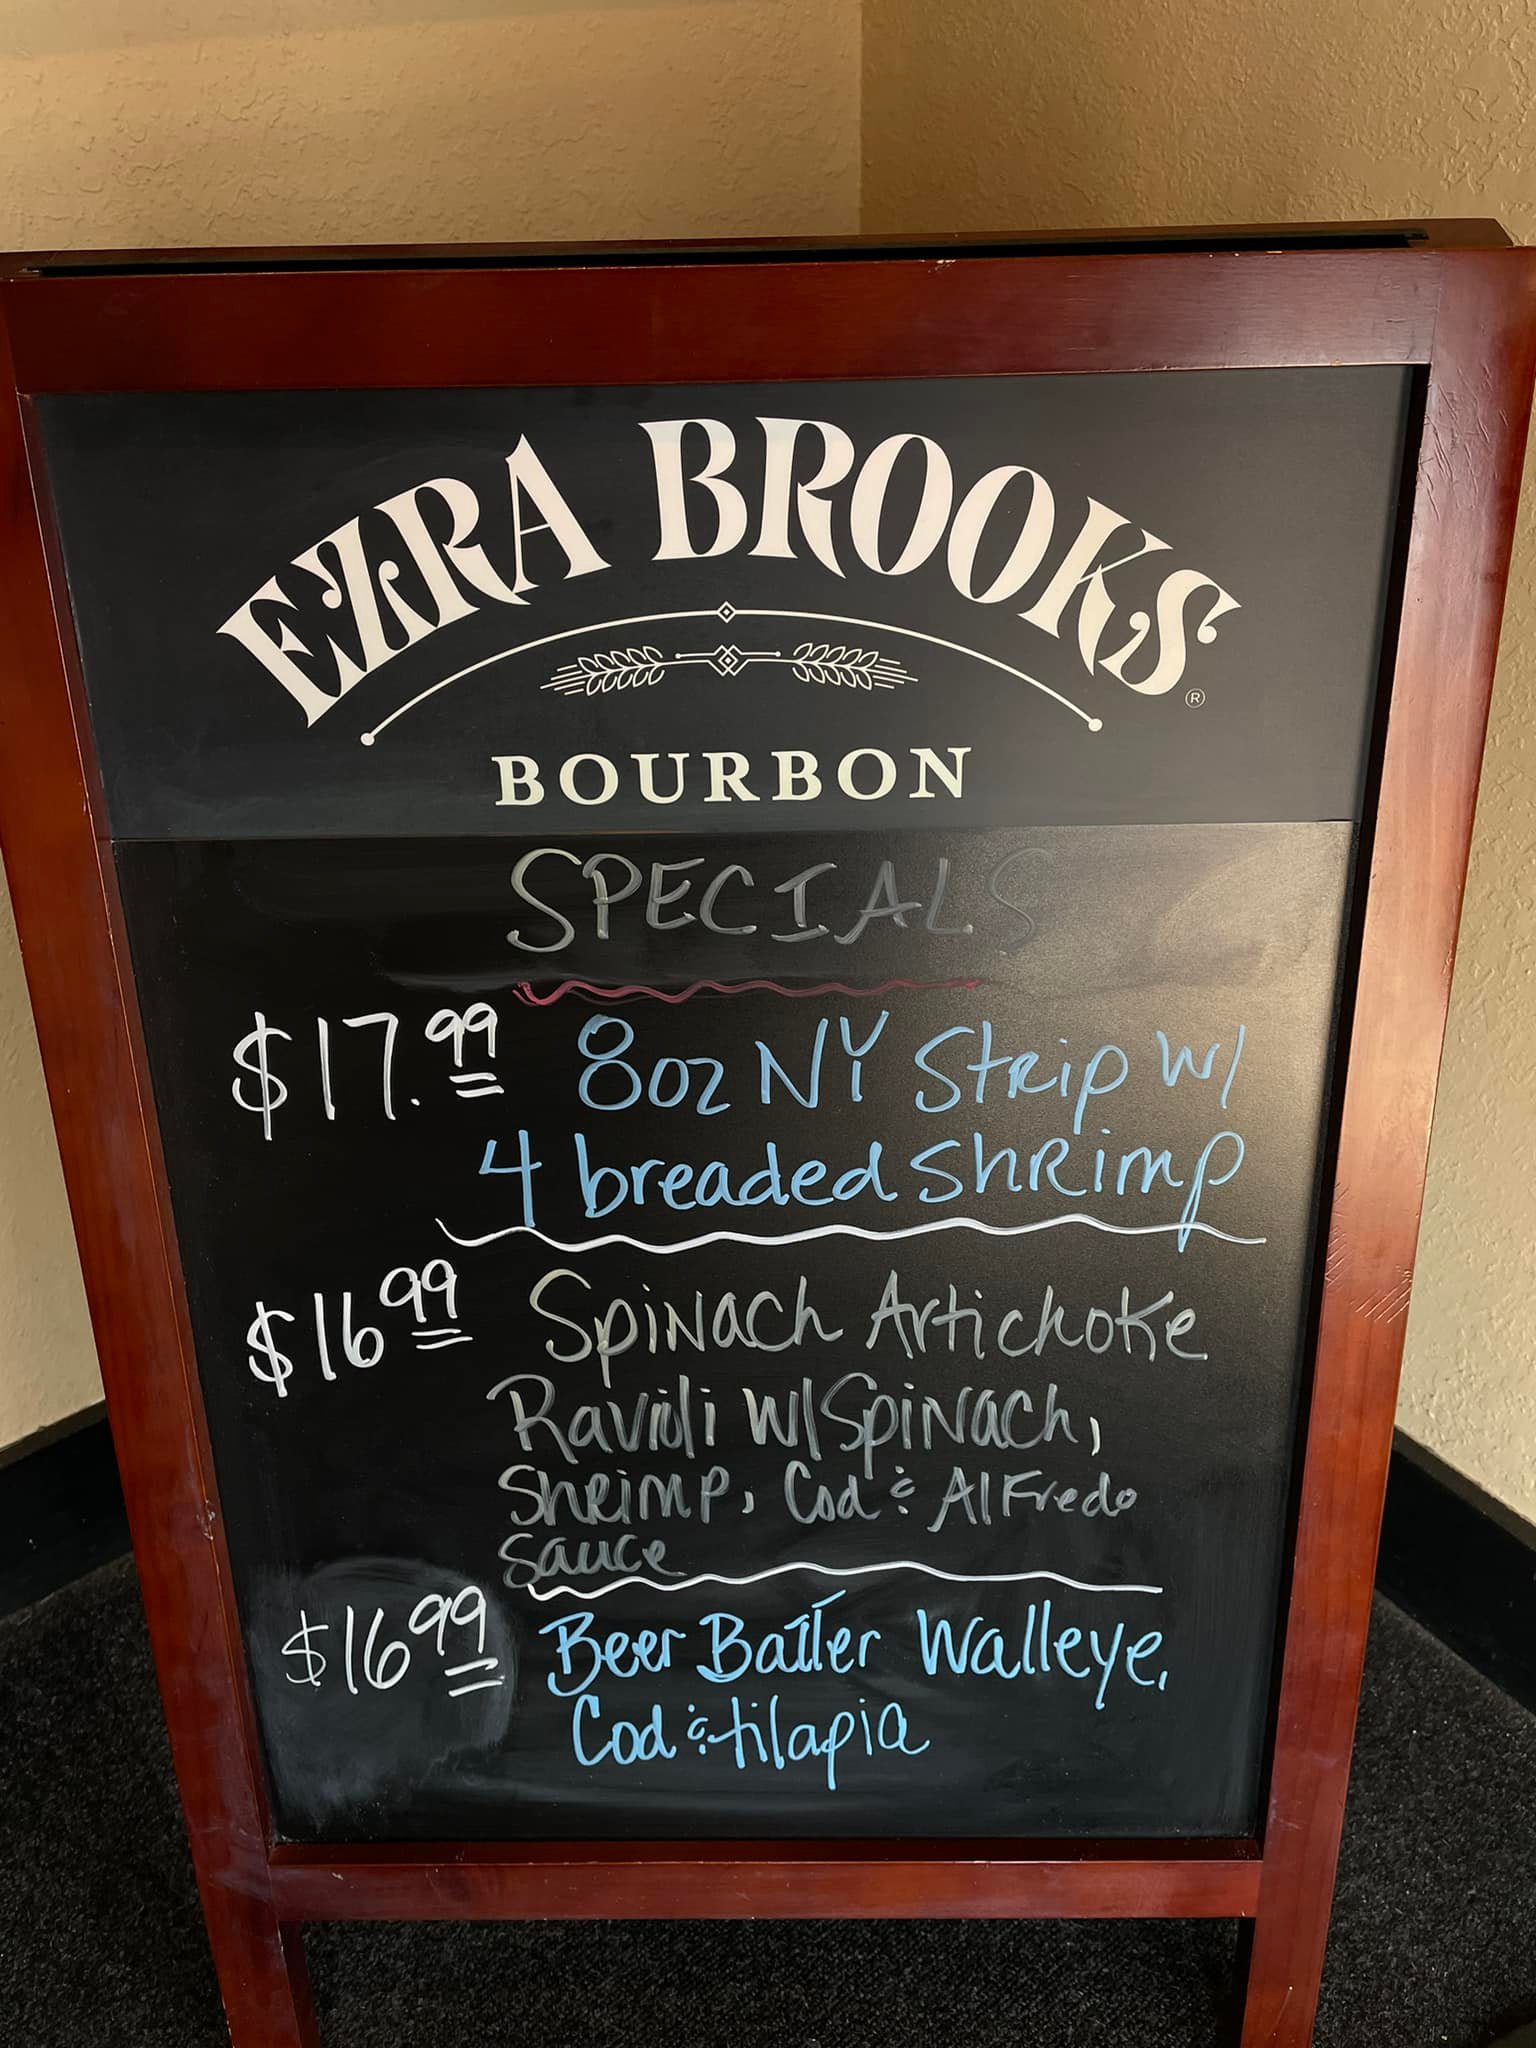 EZRA BROOKS
®
BOURBON
SPECIALS
$17.99 8oz NY Strip w/
4 breaded shrimp
$16 99 Spinach Artichoke
Ravioli w/Spinach,
Shrimp, Cod & Alfredo
Sauce
$16 99 Beer Batter Walleye,
Cod & tilapia